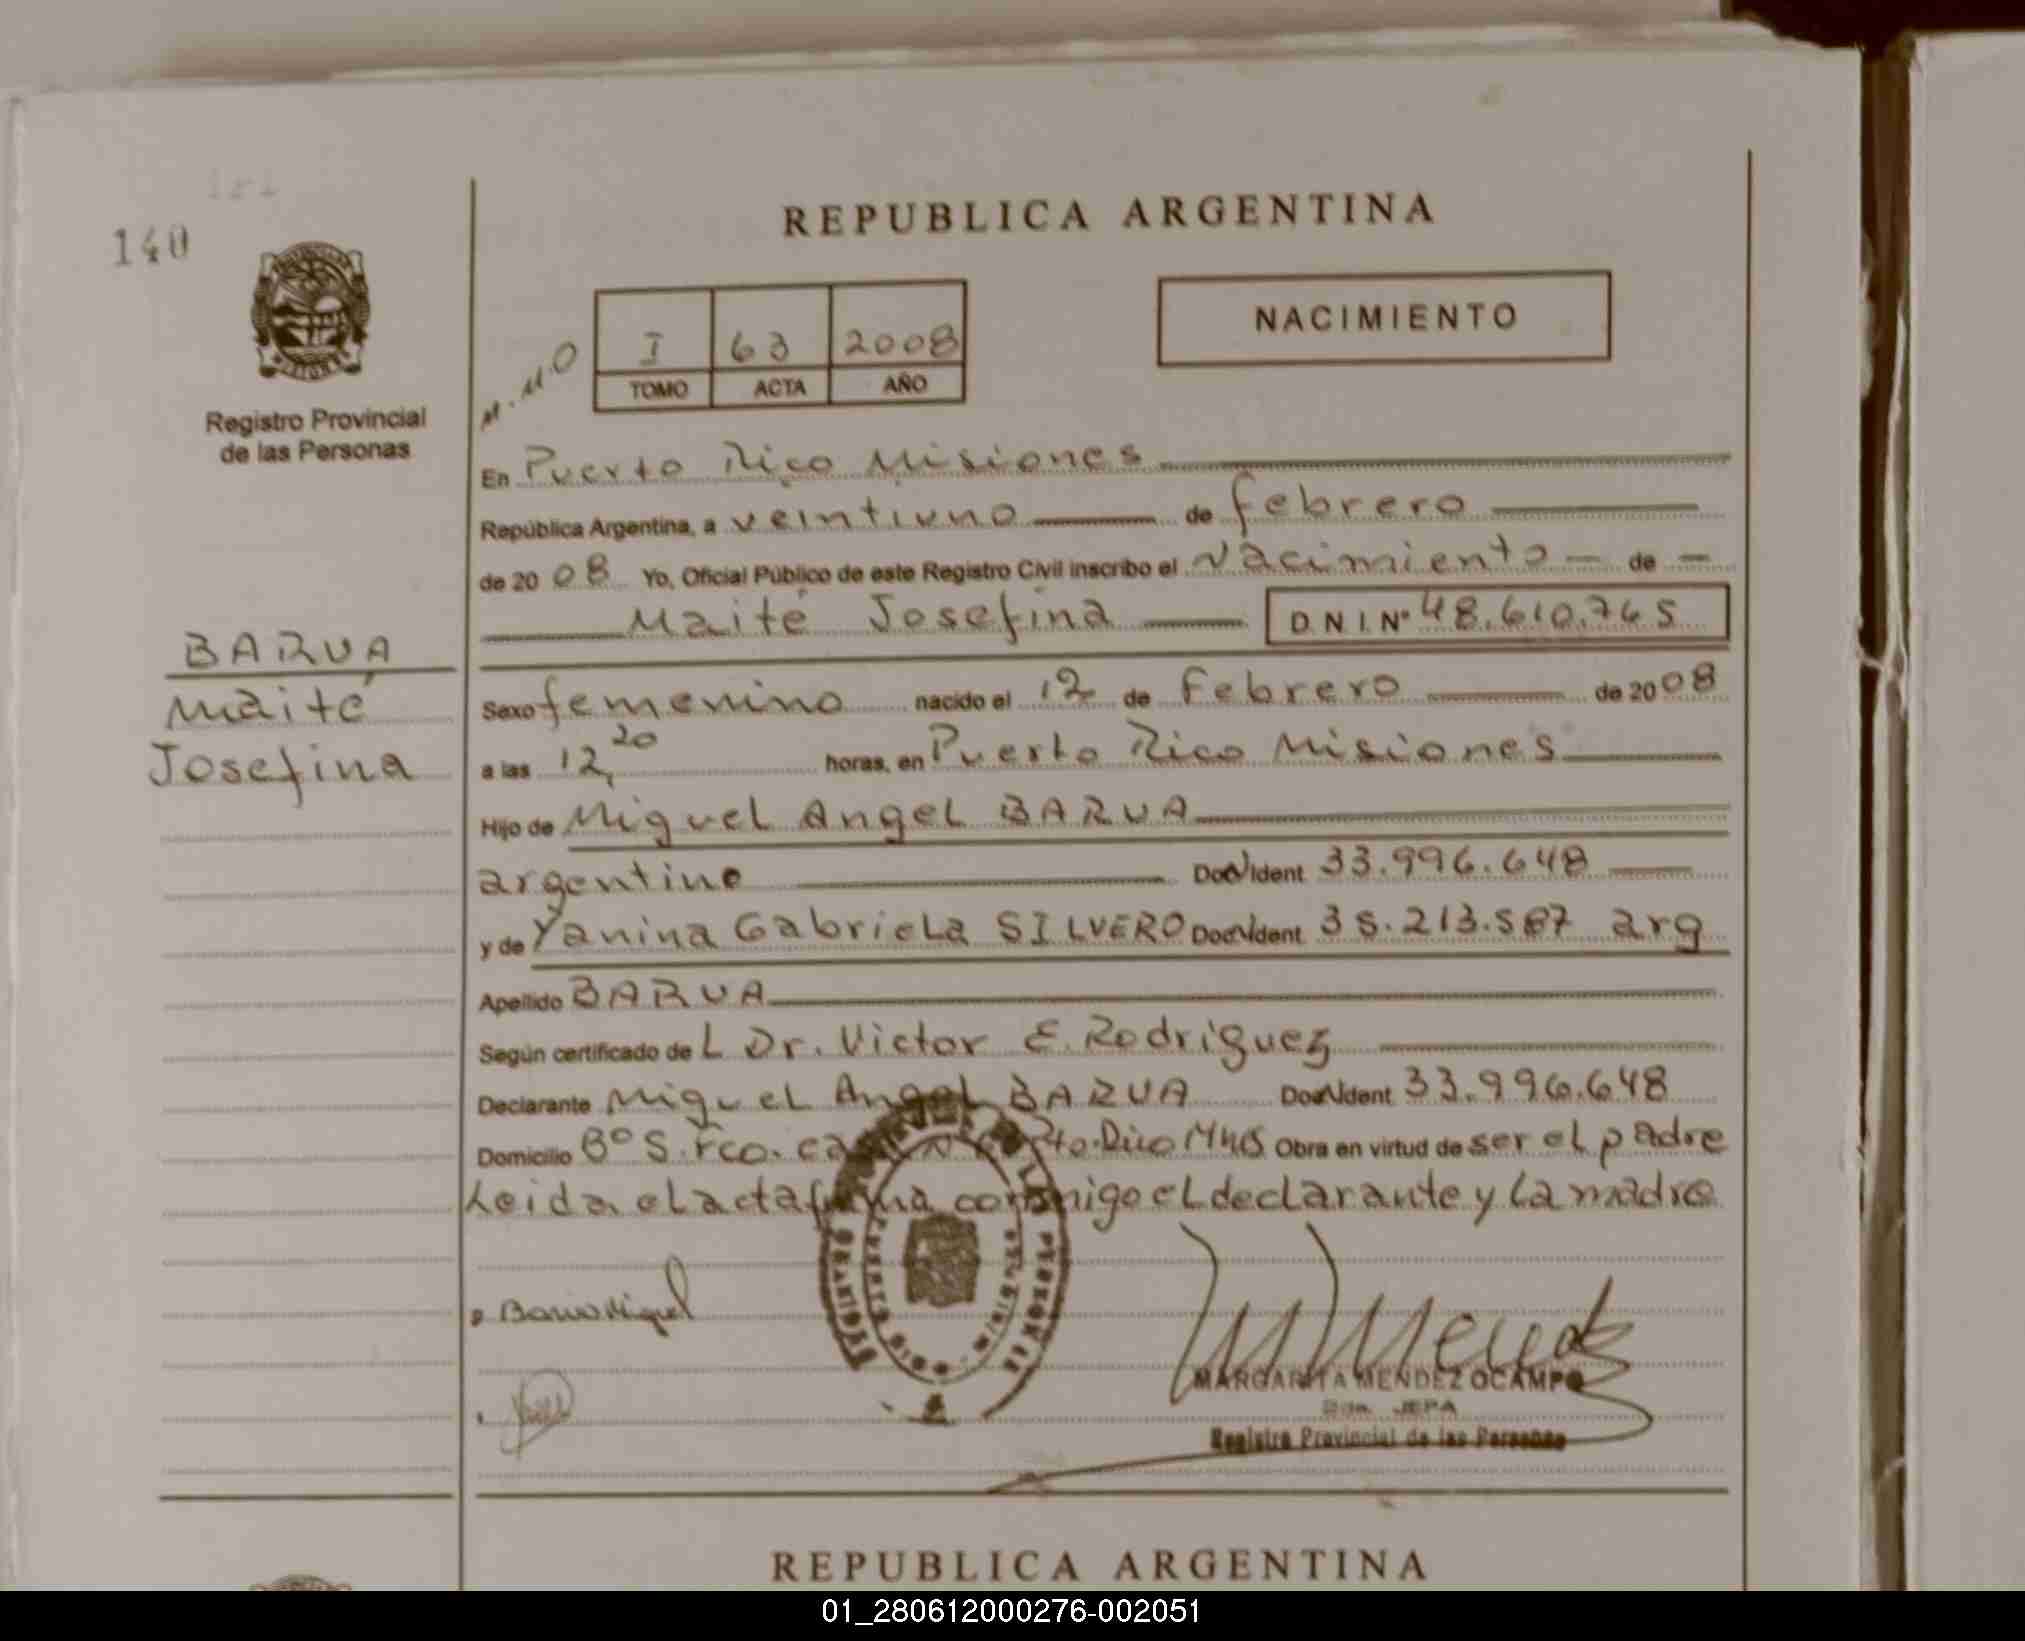 140
REPUBLICA ARGENTINA
NACIMIENTO
I 63 2008
TOMO ACTA AÑO
M.M.O
Registro Provincial
de las Personas
En Puerto Rico Misiones
República Argentina, a veintiuno de febrero
de 2008 Yo, Oficial Público de este Registro Civil inscribo el Nacimiento - de -
Maité Josefina D.N.I. Nº 48.610.765
BARUA
Maité
Josefina
Sexo femenino nacido el 12 de Febrero de 2008
a las 12,20 horas, en Puerto Rico Misiones
Hijo de Miguel Angel BARUA
argentino Doc Ident 33.996.648
y de Yanina Gabriela SILVERO Doc Ident 35.213.587 arg
Apellido BARUA
Según certificado deL Dr. Victor E. Rodriguez
Declarante Miguel Angel BARUA Doc Ident 33.996.648
Domicilio Bº S. Fco. Pto. Rico Mnes Obra en virtud de ser el padre
Leida el acta firma conmigo el declarante y la madre
MARGARITA MENDEZ OCAMPO
JEFA
Registro Provincial de las Personas
REPUBLICA ARGENTINA
01_280612000276-002051